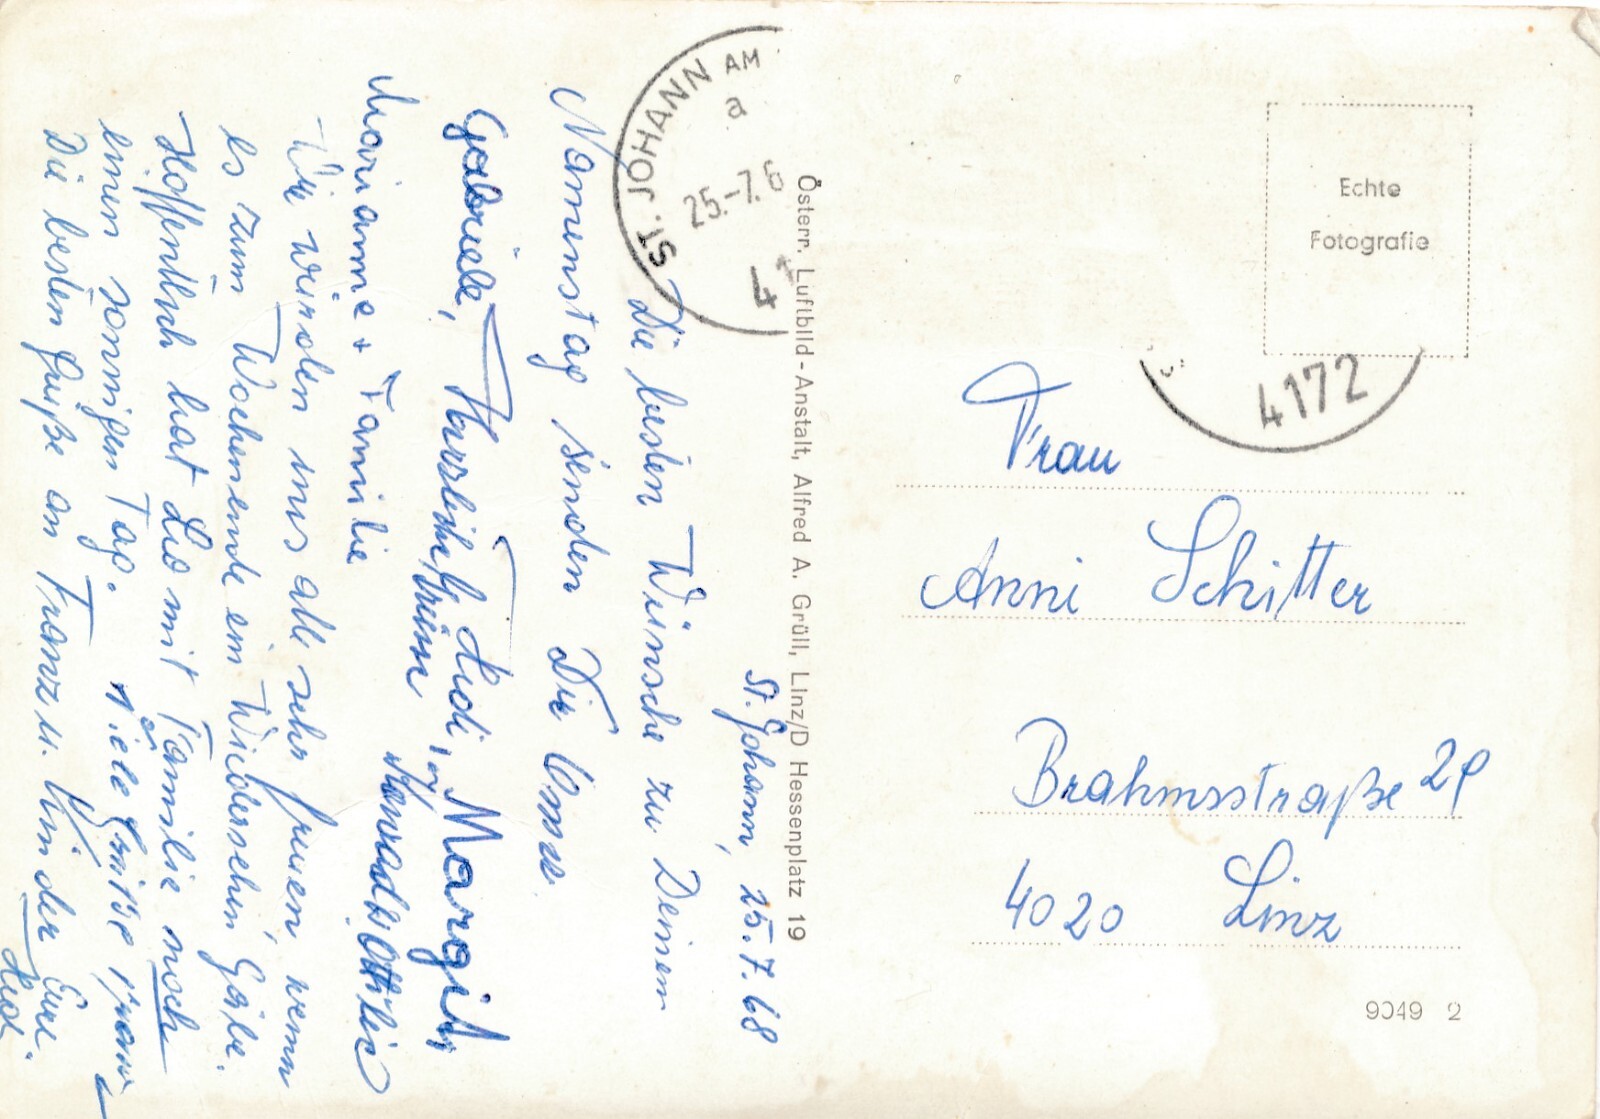 St. Johann, 25.7.68
Die besten Wünsche zu Deinem
Namenstag senden Dir Omse
Gabriele, Herzliche Heidi, Margit,
Marianne + Familie
Konrad Ottilie
Wir würden uns alle sehr freuen, wenn
es zum Wochenende ein Wiedersehen gäbe.
Hoffentlich hat Leo mit Familie noch
einen sonnigen Tag. Viele Grüße
Die besten Grüße an Franz u. Kinder Eure
Heidi
ST. JOHANN AM
a
25.-7.6
4
Österr. Luftbild-Anstalt, Alfred A. Grüll, Linz/D Hessenplatz 19
Echte
Fotografie
4172
Frau
Anni Schitter
Brahmsstraße 29
4020 Linz
9049 2